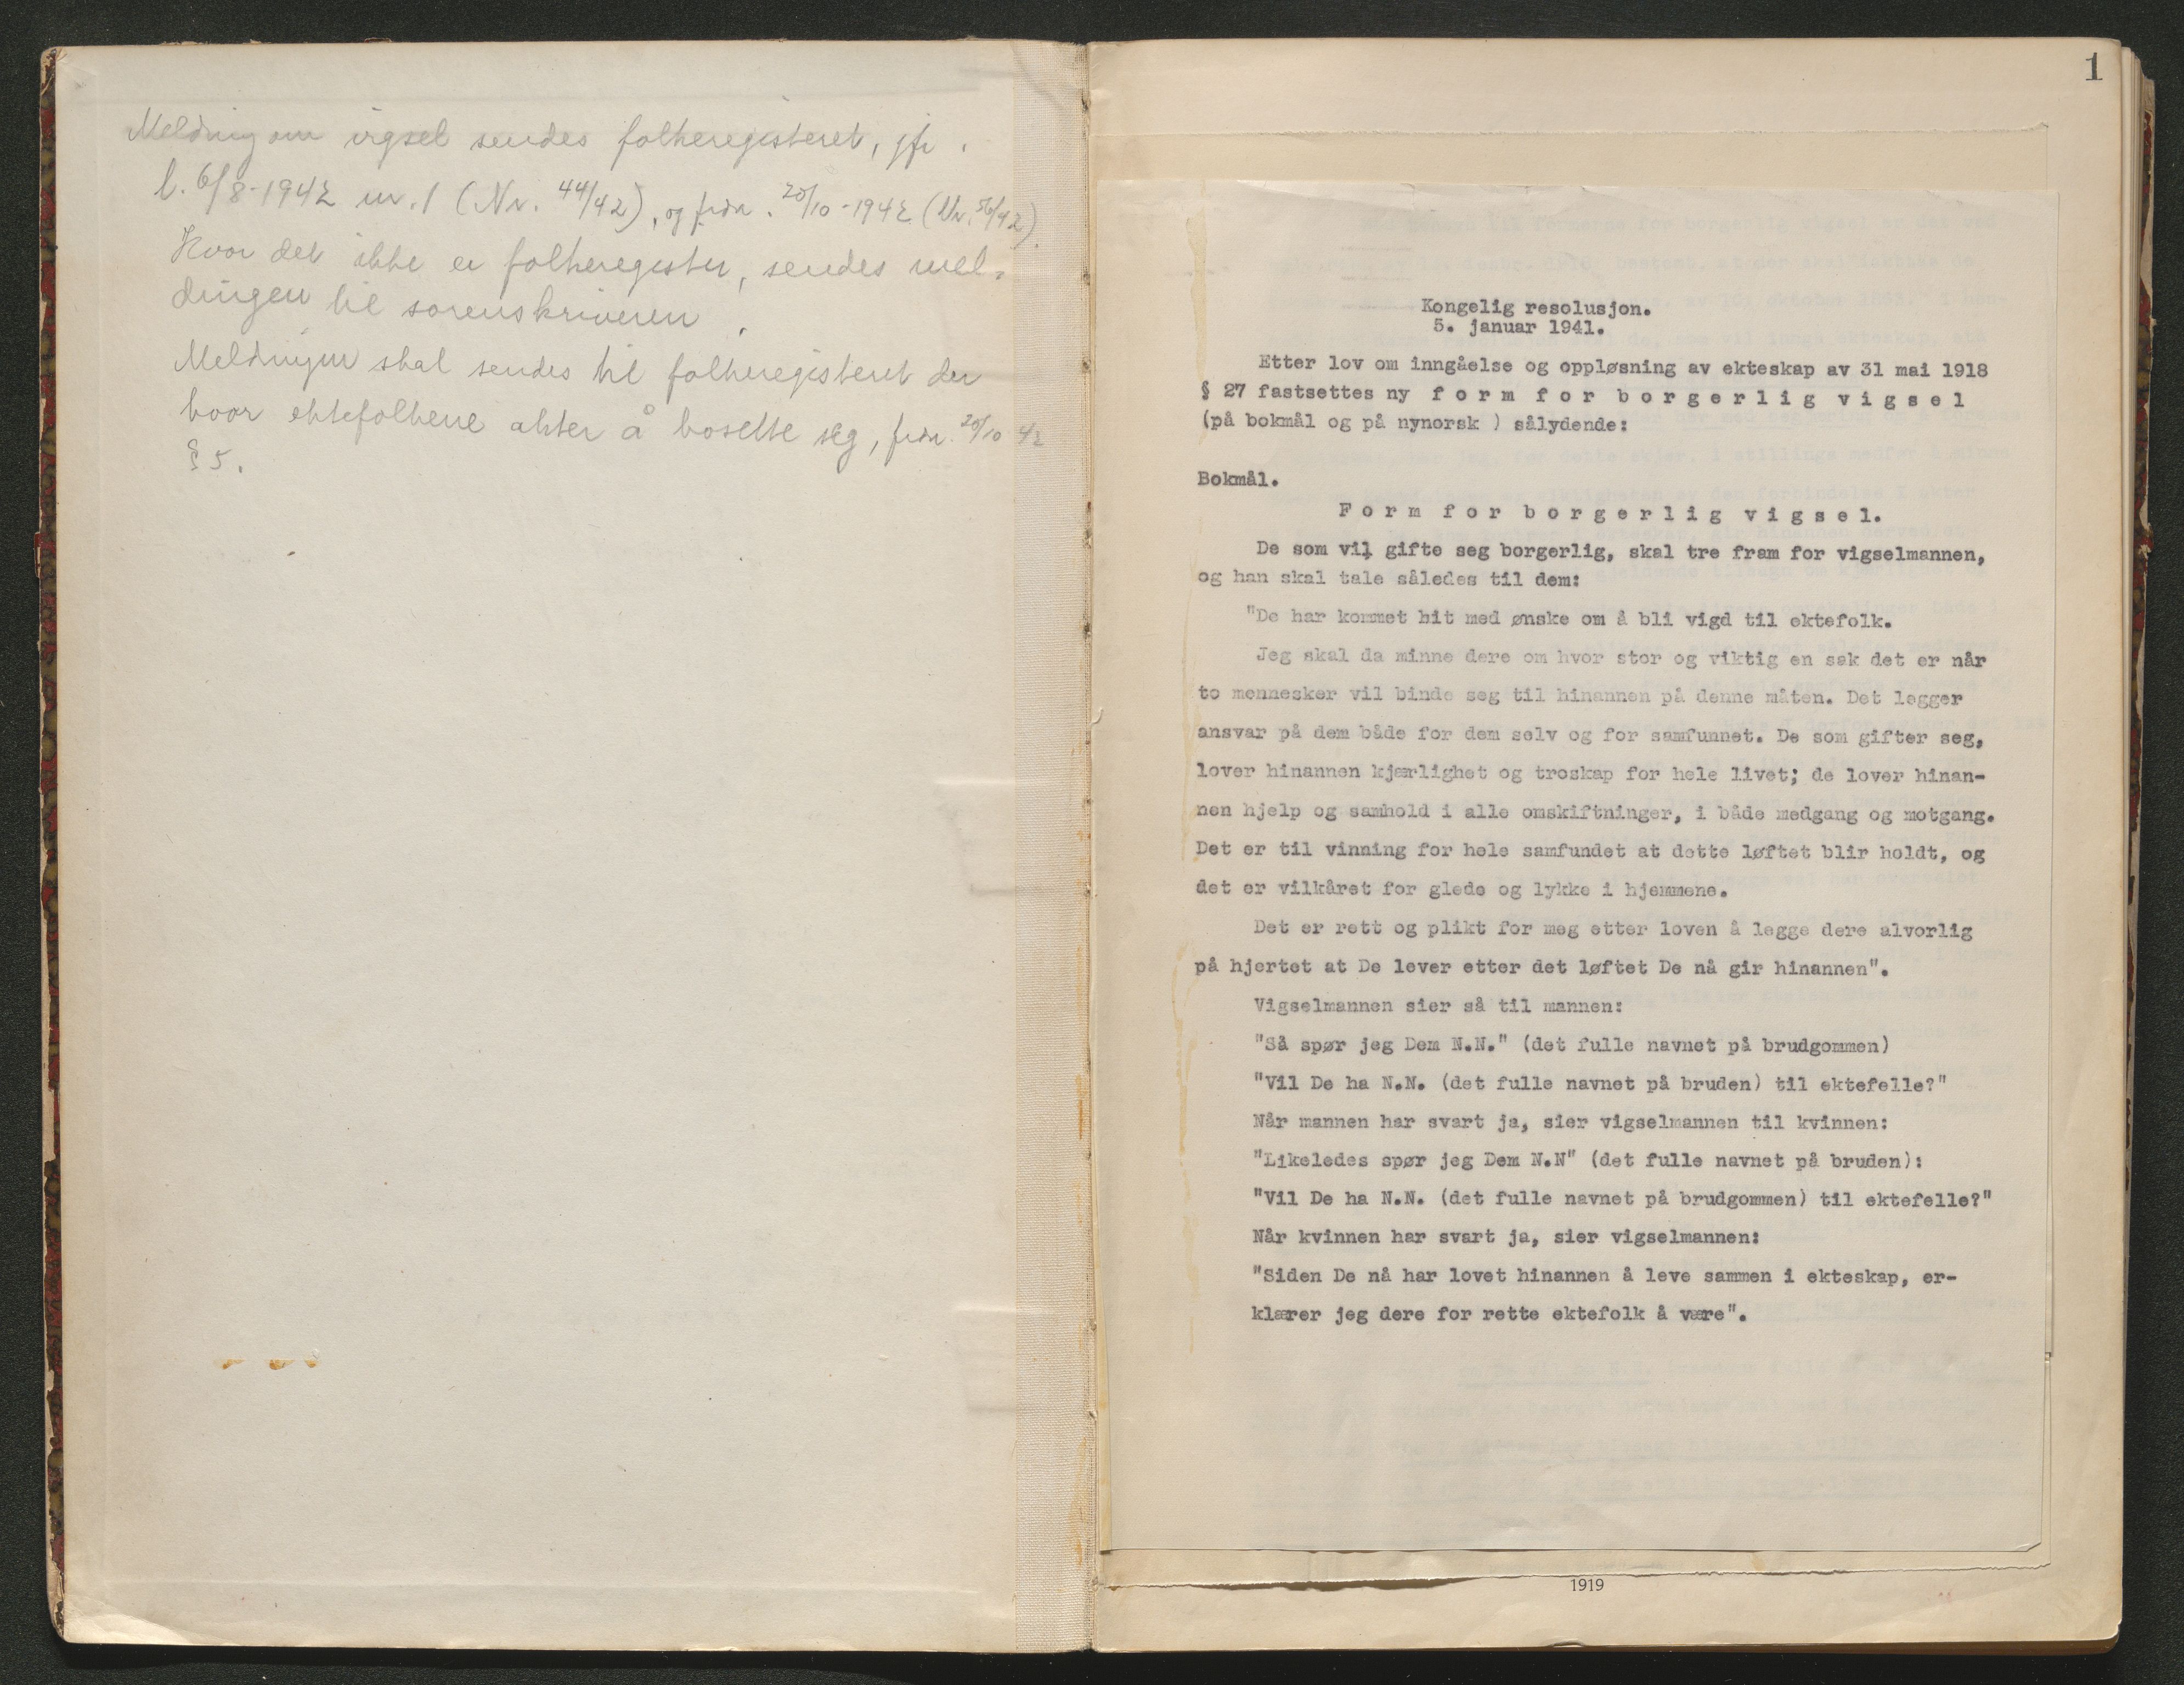 Meldning om vigsel sendes folkeregisteret, jfr.
l. 6/8-1942 nr. 1 (Nr. 44/42), og frdn. 20/10-1942 (Nr. 56/42).
Hvor det ikke er folkeregister, sendes mel-
dingen til sorenskriveren.
Meldingen skal sendes til folkeregisteret der
hvor ektefolkene akter å bosette seg, frdn. 20/10 42
§ 5.
1
Kongelig resolusjon.
5. januar 1941.
Etter lov om inngåelse og oppløsning av ekteskap av 31 mai 1918
§ 27 fastsettes ny f o r m f o r b o r g e r l i g v i g s e l
(på bokmål og på nynorsk ) sålydende:
Bokmål.
F o r m f o r b o r g e r l i g v i g s e l.
De som vil gifte seg borgerlig, skal tre fram for vigselmannen,
og han skal tale således til dem:
"De har kommet hit med ønske om å bli vigd til ektefolk.
Jeg skal da minne dere om hvor stor og viktig en sak det er når
to mennesker vil binde seg til hinannen på denne måten. Det legger
ansvar på dem både for dem selv og for samfunnet. De som gifter seg,
lover hinannen kjærlighet og troskap for hele livet; de lover hinan-
nen hjelp og samhold i alle omskiftninger, i både medgang og motgang.
Det er til vinning for hele samfundet at dette løftet blir holdt, og
det er vilkåret for glede og lykke i hjemmene.
Det er rett og plikt for meg etter loven å legge dere alvorlig
på hjertet at De lever etter det løftet De nå gir hinannen".
Vigselmannen sier så til mannen:
"Så spør jeg Dem N.N." (det fulle navnet på brudgommen)
"Vil De ha N.N. (det fulle navnet på bruden) til ektefelle?"
Når mannen har svart ja, sier vigselmannen til kvinnen:
"Likeledes spør jeg Dem N.N" (det fulle navnet på bruden):
"Vil De ha N.N. (det fulle navnet på brudgommen) til ektefelle?"
Når kvinnen har svart ja, sier vigselmannen:
"Siden De nå har lovet hinannen å leve sammen i ekteskap, er-
klærer jeg dere for rette ektefolk å være".
1919